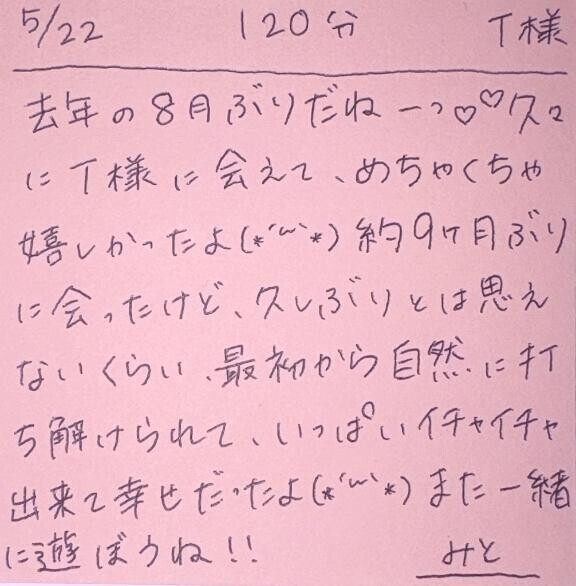 5/22 120分 T様
去年の8月ぶりだねーっ♡♡久々
にT様に会えて、めちゃくちゃ
嬉しかったよ(*´꒳`*)約9ヶ月ぶり
に会ったけど、久しぶりとは思え
ないくらい、最初から自然に打
ち解けられて、いっぱいイチャイチャ
出来て幸せだったよ(*´꒳`*)また一緒
に遊ぼうね!!
みと